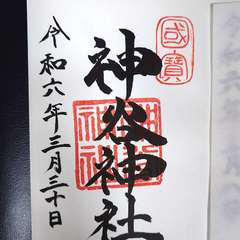 國寶
神谷神社
令和六年三月三十日